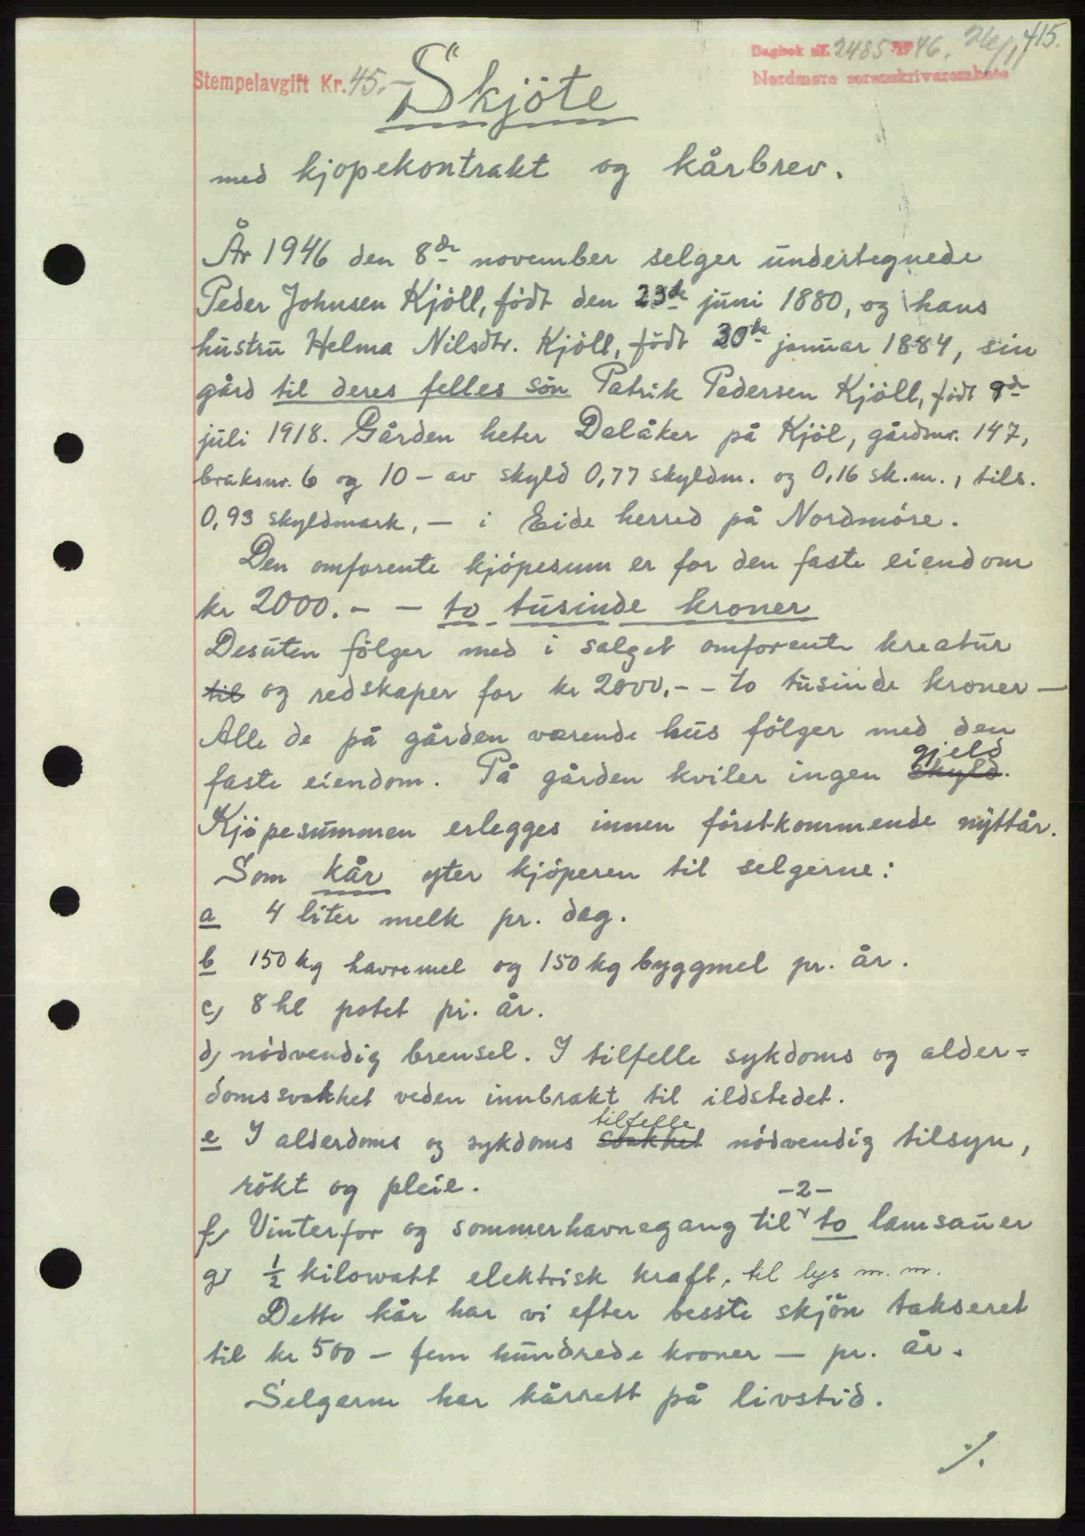 415.
Dagbok nr. 2485 19 46. 26/11
Nordmøre sorenskriverembete
Stempelavgift Kr. 45.-
Skjöte
med kjöpekontrakt og kårbrev.
År 1946 den 8de november selger undertegnede
Peder Johnsen Kjöll, födt den 23de juni 1880, og hans
hustru Helma Nilsdtr. Kjöll, födt 30te januar 1884, sin
gård til deres felles sön Patrik Pedersen Kjöll, födt 9de
juli 1918. Gården heter Dalåker på Kjöl, gårdsnr. 147,
bruksnr. 6 og 10 - av skyld 0,77 skyldm. og 0,16 sk.m., tils.
0,93 skyldmark, - i Eide herred på Nordmöre.
Den omforente kjöpesum er for den faste eiendom
kr 2000.- - to tusinde kroner
Desuten fölger med i salget omforente kreatur
til og redskaper for kr 2000.- - to tusinde kroner -
Alle de på gården værende hus fölger med den
faste eiendom. På gården kviler ingen skyld gjeld.
Kjöpesummen erlegges innen förstkommende nyttår.
Som kår yter kjöperen til selgerne:
a 4 liter melk pr. dag.
b 150 kg havremel og 150 kg byggmel pr. år.
c) 8 hl potet pr. år.
d) nödvendig brensel. I tilfelle sykdoms og alder=
domssvakhet veden innbrakt til ildstedet.
e I alderdoms og sykdoms svakhet tilfelle nödvendig tilsyn,
rökt og pleie.
f) Vinterfor og sommerhavnegang til -2- to lamsauer
g) 1/2 kilowatt elektrisk kraft, til lys m. m.
Dette kår har vi efter beste skjön takseret
til kr 500 - fem hundrede kroner - pr. år.
Selgerne har kårrett på livstid.
./.